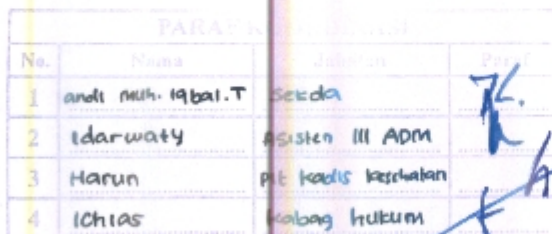 PARAF KOORDINASI
No. Nama Jabatan Paraf
1 andi muh. Iqbal.T Sekda
2 Idarwaty Asisten III ADM
3 Harun Plt kadis kesehatan
4 Ichlas Kabag hukum